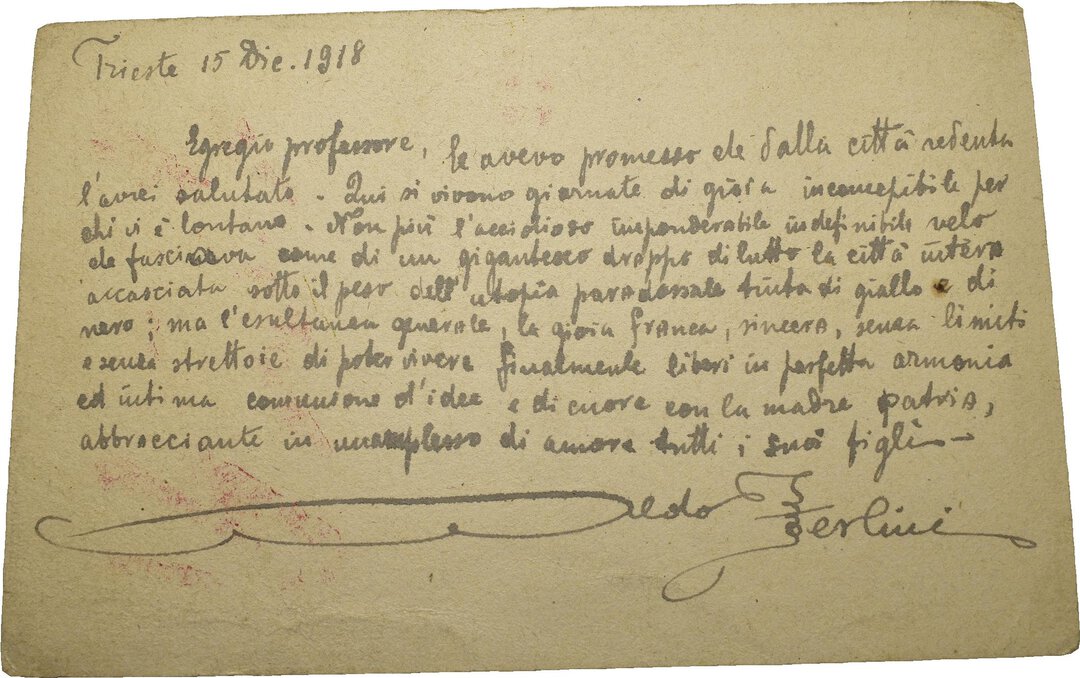 Trieste 15 Dic. 1918
Egregio professore, le avevo promesso che dalla città redenta
l'avrei salutato. Qui si vivono giornate di gioia inconcepibile per
chi vi è lontano. Non più l'accidioso imponderabile indefinibile velo
che fasciava come di un gigantesco drappo di lutto la città intera
accasciata sotto il peso dell'utopia paradossale tinta di giallo e di
nero; ma l'esultanza generale, la gioia franca, sincera, senza limiti
e senza strettoie di poter vivere finalmente liberi in perfetta armonia
ed intima comunione d'idee e di cuore con la madre patria,
abbracciante in un amplesso di amore tutti i suoi figli—
Aldo